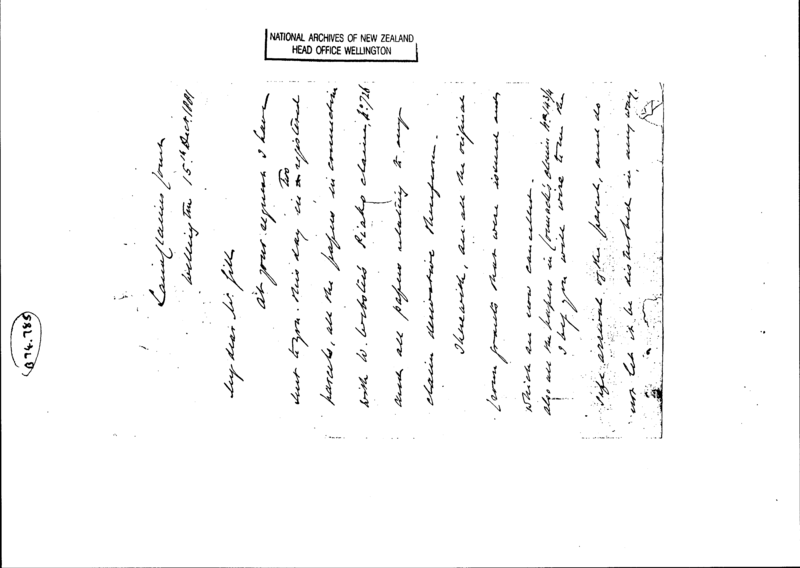 NATIONAL ARCHIVES OF NEW ZEALAND
HEAD OFFICE WELLINGTON
Land Claims Court
Wellington 15th Decr. 1881
My dear Mr. Gill
At your request I have
Two
sent to you this day in registered
parcels, all the papers in connection
with W. Webster's Piako claim, No 726
and all papers relating to any
claim derivative therefrom.
Therewith, are all the original
Crown grants that were issued and
which are now cancelled.
also all the papers in Cormack's claim No
I beg you will wire to me the
safe arrival of the parcel, and do
not let it be disturbed in any way.
(B 74. 785)